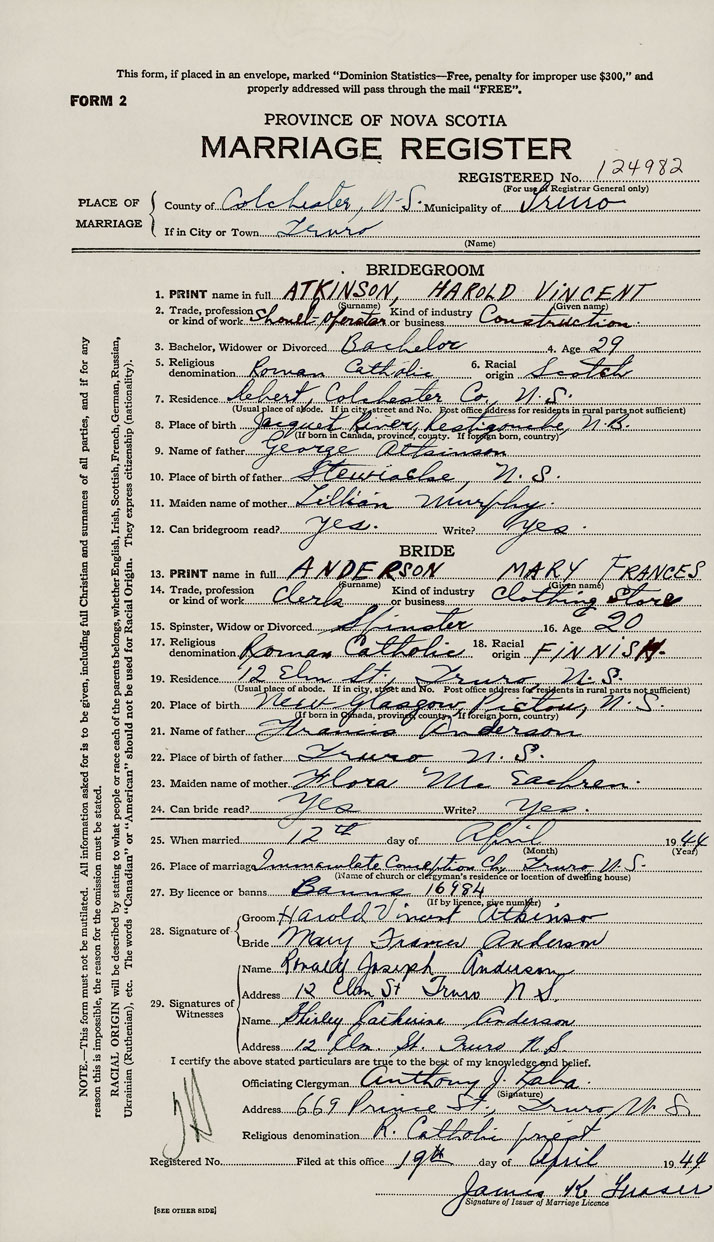 This form, if placed in an envelope, marked "Dominion Statistics—Free, penalty for improper use $300," and
properly addressed will pass through the mail "FREE".
FORM 2
PROVINCE OF NOVA SCOTIA
MARRIAGE REGISTER
REGISTERED No. 124982
(For use of Registrar General only)
PLACE OF MARRIAGE
County of Colchester, N.S. Municipality of Truro
If in City or Town Truro
(Name)
BRIDEGROOM
1. PRINT name in full ATKINSON, HAROLD VINCENT
(Surname) (Given name)
2. Trade, profession or kind of work Shovel-operator Kind of industry or business Construction.
3. Bachelor, Widower or Divorced Bachelor 4. Age 29
5. Religious denomination Roman Catholic 6. Racial origin Scotch
7. Residence Debert, Colchester Co., N.S.
(Usual place of abode. If in city, street and No. Post office address for residents in rural parts not sufficient)
8. Place of birth Jacquet River, Restigouche, N.B.
(If born in Canada, province, county. If foreign born, country)
9. Name of father George Atkinson
10. Place of birth of father Stewiacke, N.S.
11. Maiden name of mother Lillian Murphy.
12. Can bridegroom read? Yes. Write? Yes.
BRIDE
13. PRINT name in full ANDERSON MARY FRANCES
(Surname) (Given name)
14. Trade, profession or kind of work Clerk Kind of industry or business Clothing Store
15. Spinster, Widow or Divorced Spinster 16. Age 20
17. Religious denomination Roman Catholic 18. Racial origin FINNISH.
19. Residence 12 Elm St., Truro, N.S.
(Usual place of abode. If in city, street and No. Post office address for residents in rural parts not sufficient)
20. Place of birth New Glasgow, Pictou, N.S.
(If born in Canada, province, county. If foreign born, country)
21. Name of father Francis Anderson
22. Place of birth of father Truro N.S.
23. Maiden name of mother Flora Mc Eachren.
24. Can bride read? Yes Write? Yes.
25. When married 12th day of April 1944
(Month) (Year)
26. Place of marriage Immaculate Conception Ch, Truro N.S.
(Name of church or clergyman's residence or location of dwelling house)
27. By licence or banns Banns 16984
(If by licence, give number)
28. Signature of
Groom Harold Vincent Atkinso
Bride Mary Frances Anderson
29. Signatures of Witnesses
Name Ronald Joseph Anderson
Address 12 Elm St Truro N S.
Name Shirley Catherine Anderson
Address 12 Elm St. Truro N.S
I certify the above stated particulars are true to the best of my knowledge and belief.
Officiating Clergyman Anthony J.
(Signature)
Address 669 Prince St., Truro, N.S.
Religious denomination R. Catholic priest
Registered No. Filed at this office 19th day of April 1944
James K Fraser
Signature of Issuer of Marriage Licence
[SEE OTHER SIDE]
NOTE.—This form must not be mutilated. All information asked for is to be given, including full Christian and surnames of all parties, and if for any
reason this is impossible, the reason for the omission must be stated.
RACIAL ORIGIN will be described by stating to what people or race each of the parents belongs, whether English, Irish, Scottish, French, German, Russian,
Ukrainian (Ruthenian), etc. The words "Canadian" or "American" should not be used for Racial Origin. They express citizenship (nationality).